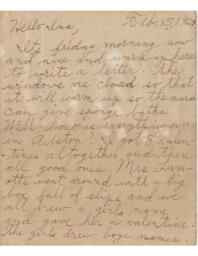 Feb. 15, 19
Hello Ina,
It's friday morning now
and nice and warm in here
to write a letter. The
windows are closed so that
it will warm up so the nurse
can give sponge baths.
Well how is everyone now
in Alston? I got 8 valen-
tines altogether and there
all good ones. Mrs.
went around with a big
box full of slips and we
all drew a girls name
and gave her a valentine.
The girls drew boys names.